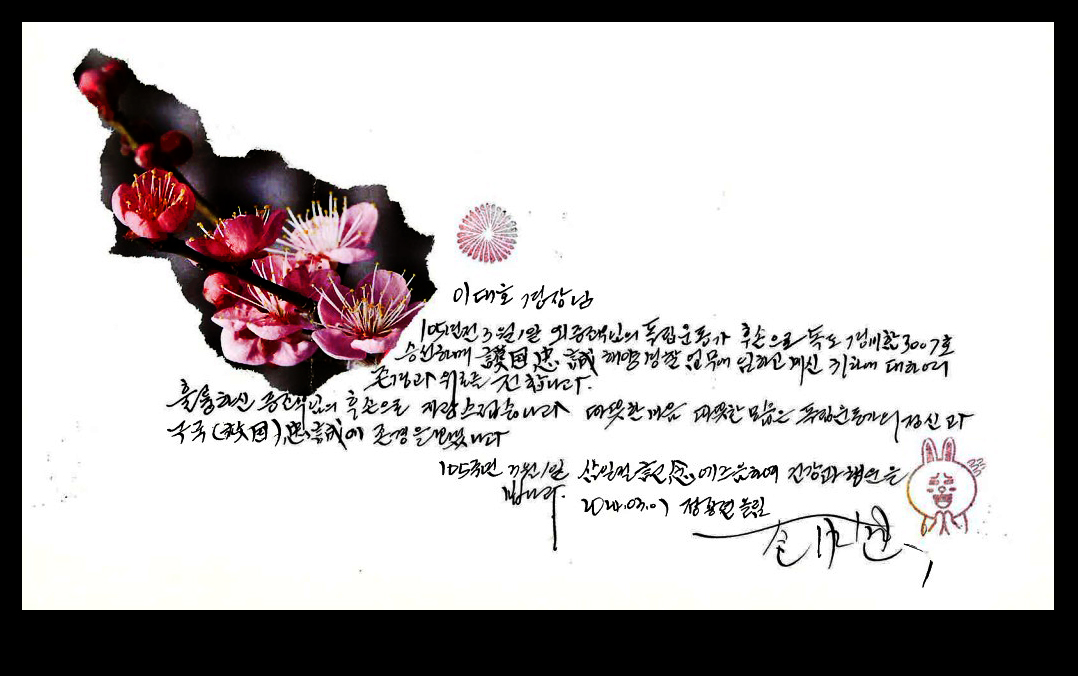 이대호 경장님
105년전 3월1일 외증조부님의 독립운동가 후손으로 독도 경비함 3007호
승선하며 護国忠誠 해양경찰 업무에 임하고 계신 귀하에 대하여
존경과 위로를 전합니다.
훌륭하신 증조부님의 후손으로 자랑스럽습니다 따뜻한 마음 따뜻한 믿음은 독립운동가의 정신과
구국(救国)忠誠에 존경을
105주년 3월1일 삼일절 記念 에 즈음하여 건강과 행운을
빕니다.
2024.03.01